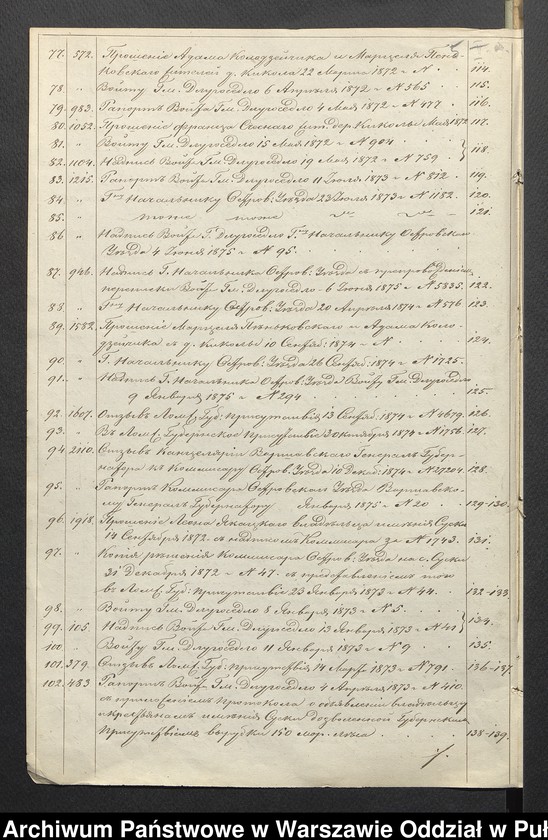 77. 572. Прошение Адама Колодзейчика и Марцеля Пень-
ковскаго жителей д. Кикола 22 Марта 1872 г. N . 114.
78. " Войту Гм. Длугоседло 6 Апреля 1872 г. N 365 . 115.
79. 983. Рапортъ Войта Гм. Длугоседло 4 Мая 1872 г. N 477 . 116.
80. 1052. Прошение Франца жит. дер. Киколы Мая 1872 117.
81. " Войту Гм. Длугоседло 15 Мая 1872 г. N 904 .
82. 1104. Надпись Войта Гм. Длугоседло 19 Мая 1872 г. N 759 . } 118.
83. 1215. Рапортъ Войта Гм. Длугоседло 11 Iюля 1873 г. N 812. 119.
84. " Г-ну Начальнику Остров. Уезда 23 Iюля 1873 г. N 1182. 120.
85. " тоже тоже 121.
86 " Надпись Войта Г. Длугоседло Г-ну Начальнику Островскаго
Уезда 4 Iюня 1875 г. N 95.
87. 946. Надпись Г. Начальника Остров: Уезда съ препровождениемъ
переписки Войту Гм. Длугоседло 6 Iюня 1875 г. N 5835. 122.
88. " Г-ну Начальнику Остров: Уезда 20 Апреля 1874 г. N 576 123.
89. 1582. Прошение Марцеля Пеньковскаго и Адама Коло-
дзейчика съ д. Киколы 10 Сентяб: 1874 г. N . 124.
90. " Г. Начальнику Остров: Уезда 26 Сентяб: 1874 г. N 1725.
91. " Надпись Г. Начальника Остров: Уезда Войту Гм. Длугоседло
9 Января 1875 г. N 294 . 125.
92. 1607. Отзывъ Ломж. Губ: Присутствия 13 Сентяб. 1874 г. N 4679. 126.
93. " Въ Ломж. Губернское Присутствие 3 Октября 1874 г. N 1756. 127.
94. 2110. Отзывъ Канцелярии Варшавскаго Генералъ Губер-
натора къ Коммисару Остров. Уезда 10 Декаб: 1874 г. N 128.
95. " Рапортъ Коммисара Островскаго Уезда Варшавско-
му Генералъ Губернатору Января 1875 г. N 20 . 129-130.
96. 1918. Прошение владельца имения Суски
14 Сентября 1872. съ надписью Коммисара за N 1743. 131.
97. " Копия решения Коммисара Остров: Уезда на с. Суски
31 Декабря 1872 г. N 47. съ представлениемъ
въ Ломж. Губ: присутствие 23 Января 1873 г. N 44. 132-133
98. " Войту Гм. Длугоседло 8 Января 1873 г. N 5.
99. 105. Надпись Войта Гм. Длугоседло 13 Января 1873 г. N 41 } 134.
100. " Войту Гм. Длугоседло 11 Января 1873 г. N 9 . 135.
101. 379. Отзывъ Ломж. Губ: присутствия 14 Марта 1873 г. N 791. 136-137.
102. 483 Рапортъ Войта Гм. Длугоседло 4 Апреля 1873 г. N 410.
съ протокола о объявлении владельцу
и крестьянамъ имения Суски дозволенной Губернскимъ
Присутствиемъ вырубки 150 мор. леса . 138-139.
Archiwum Państwowe w Warszawie Oddział w Puł